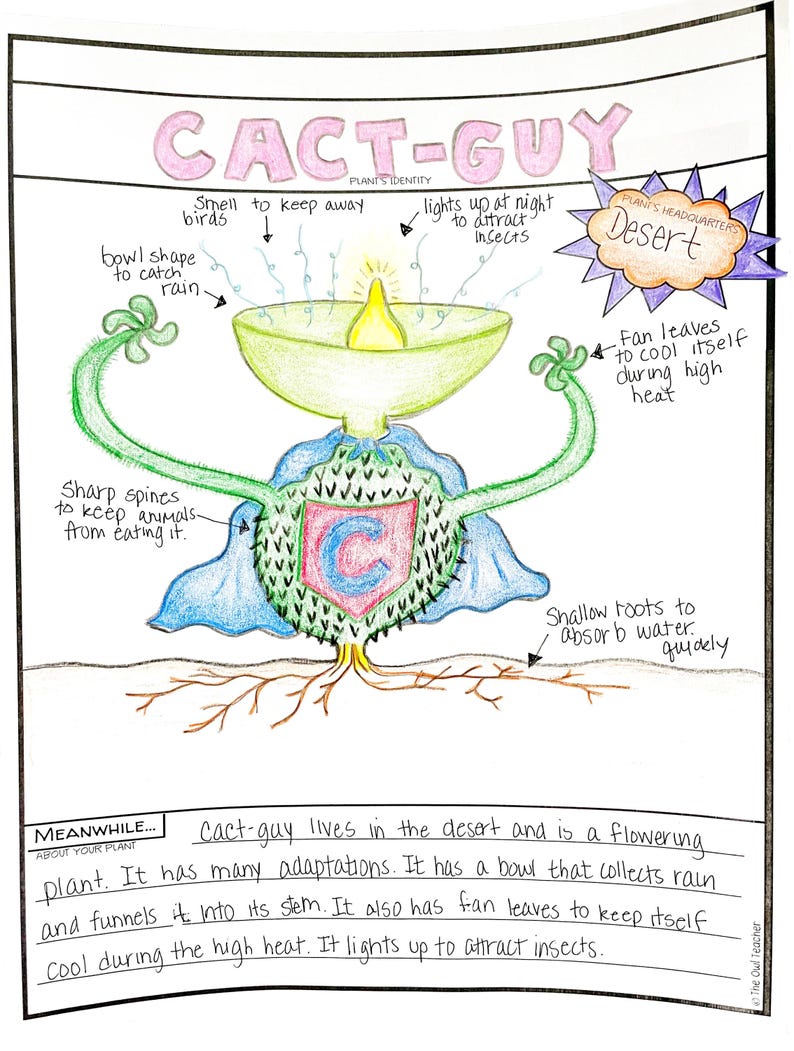 CACT-GUY
PLANT'S IDENTITY
Smell to keep away
birds
lights up at night
to attract
insects
PLANT'S HEADQUARTERS
Desert
bowl shape
to catch
rain
Fan leaves
to cool itself
during high
heat
Sharp spines
to keep animals
from eating it.
C
Shallow roots to
absorb water
quickly
MEANWHILE...
ABOUT YOUR PLANT
Cact-guy lives in the desert and is a flowering
plant. It has many adaptations. It has a bowl that collects rain
and funnels it into its stem. It also has fan leaves to keep itself
cool during the high heat. It lights up to attract insects.
© The Owl Teacher